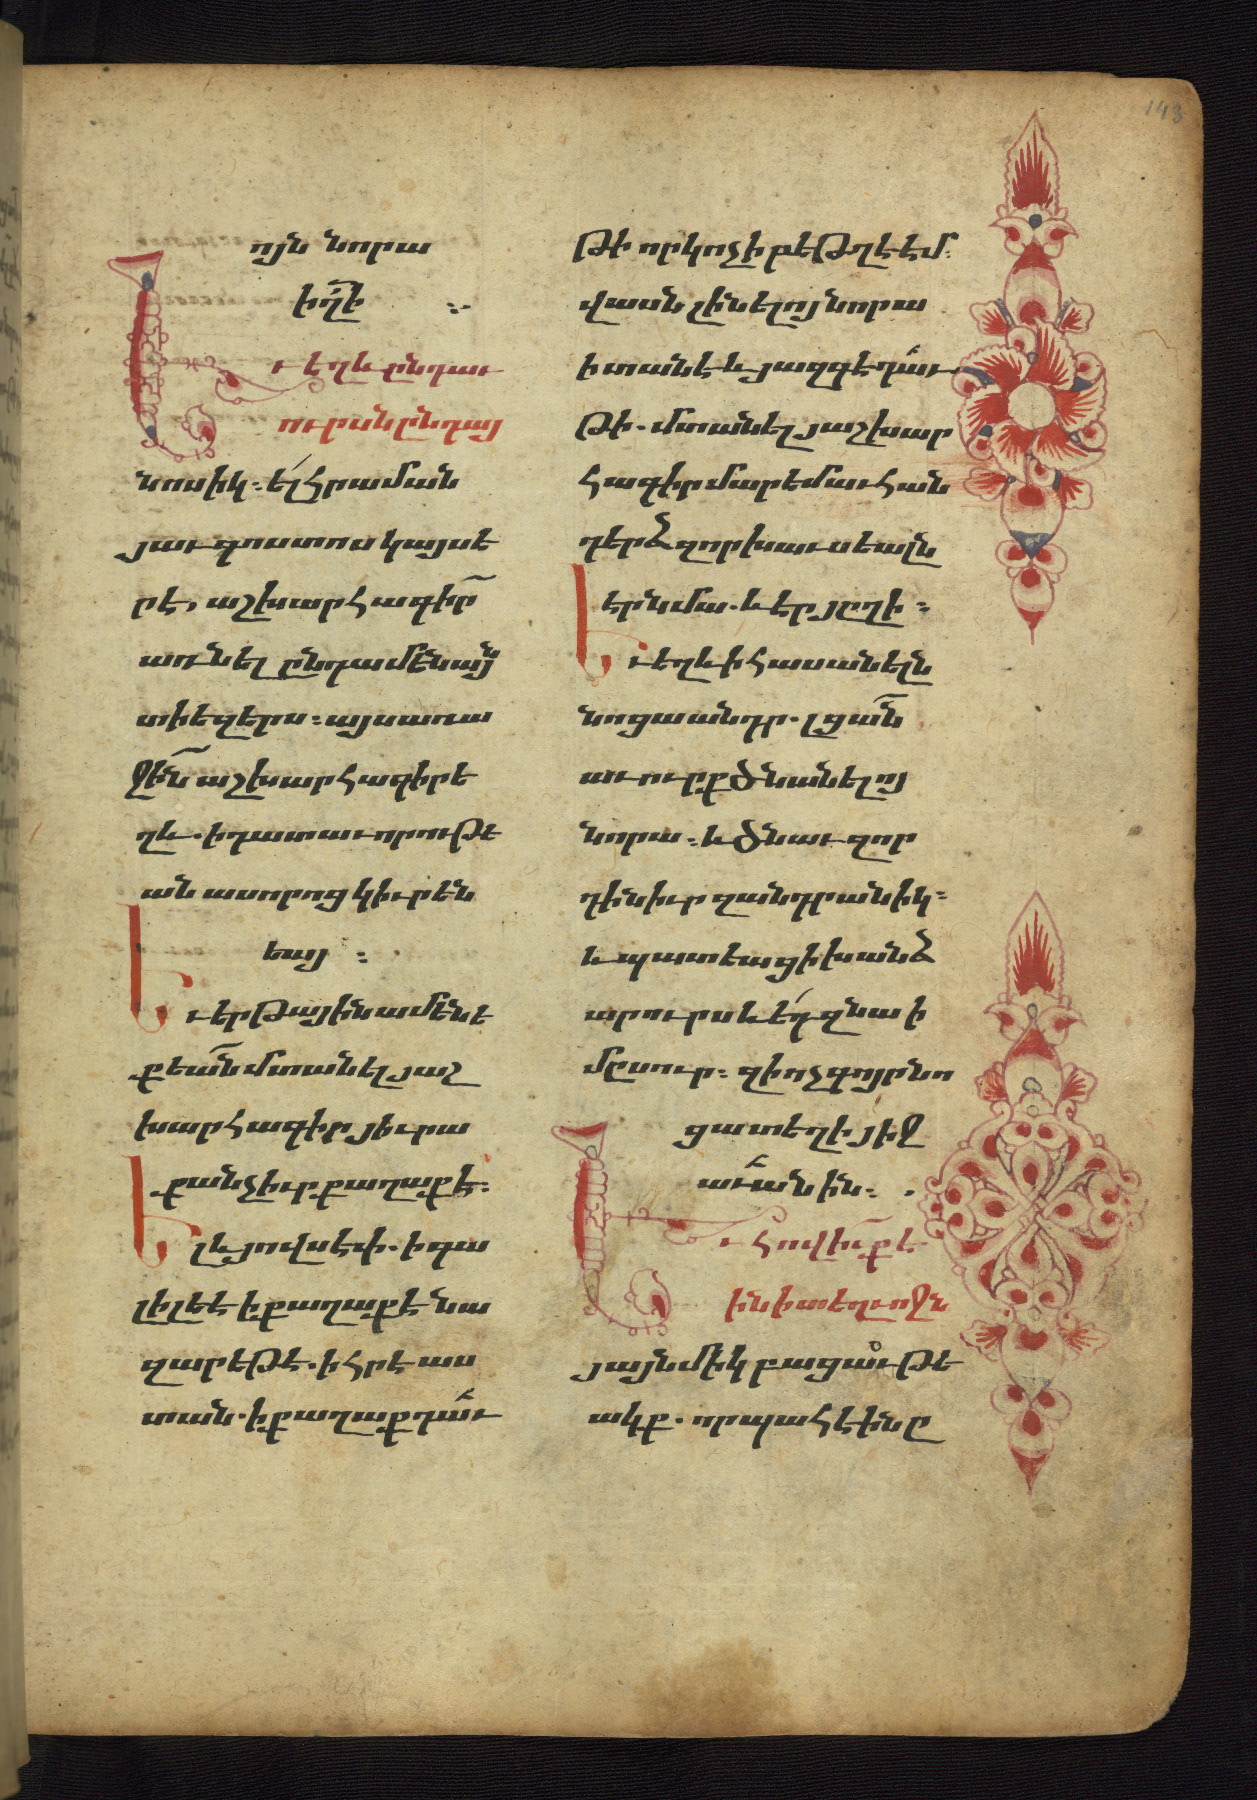 143
ոյն նորա
իղ̃ի :-
Եւ եղև ընդաւ
ուրսն ընդայ
նոսիկ : ել հրաման
յաւգոստոս կայսե
րէ, աշխարհագիր̃
առնել ընդամենայ̃ն
տիեզերս : այս առա
ջին̃ աշխարհագիր ե
ղև . ի դատաւորութե
ան ասորոց կիւրեն
եայ :
Եւ երթային ամենե
քեան̃ մտանել յաշ
խարհագիր յիւրա
քանչիւր քաղաքէ :
Ել և յովսէփ . ի գա
լիլեէ ի քաղաքէ նա
զարեթէ . ի հրէաս
տան . ի քաղաք դաւ̃
թի որ կոչի բեթղեէմ :
վասն լինելոյ նորա
ի տանէ և յազգէ դաւ̃
թի . մտանել յաշխար
հագիր մարեմաւ հան
դերձ զոր խաւսեալն
էր նմա . և էր յըղի :
Եւ եղև ի հասանելն
նոցա անդր . լցան̃
աւուրք ծնանելոյ
նորա : և ծնաւ զոր
դին իւր զանդրանիկ :
և պատեաց ի խանձ
արուրս և եդ զնա ի
մըսուր : զի ոչ գոյր նո
ցա տեղի յիջ
աւանին : .
Եւ հովիւ̃ք է
ին ի տեղւոջն
յայնմիկ բացաւթե
ակք . որ պահէին ը